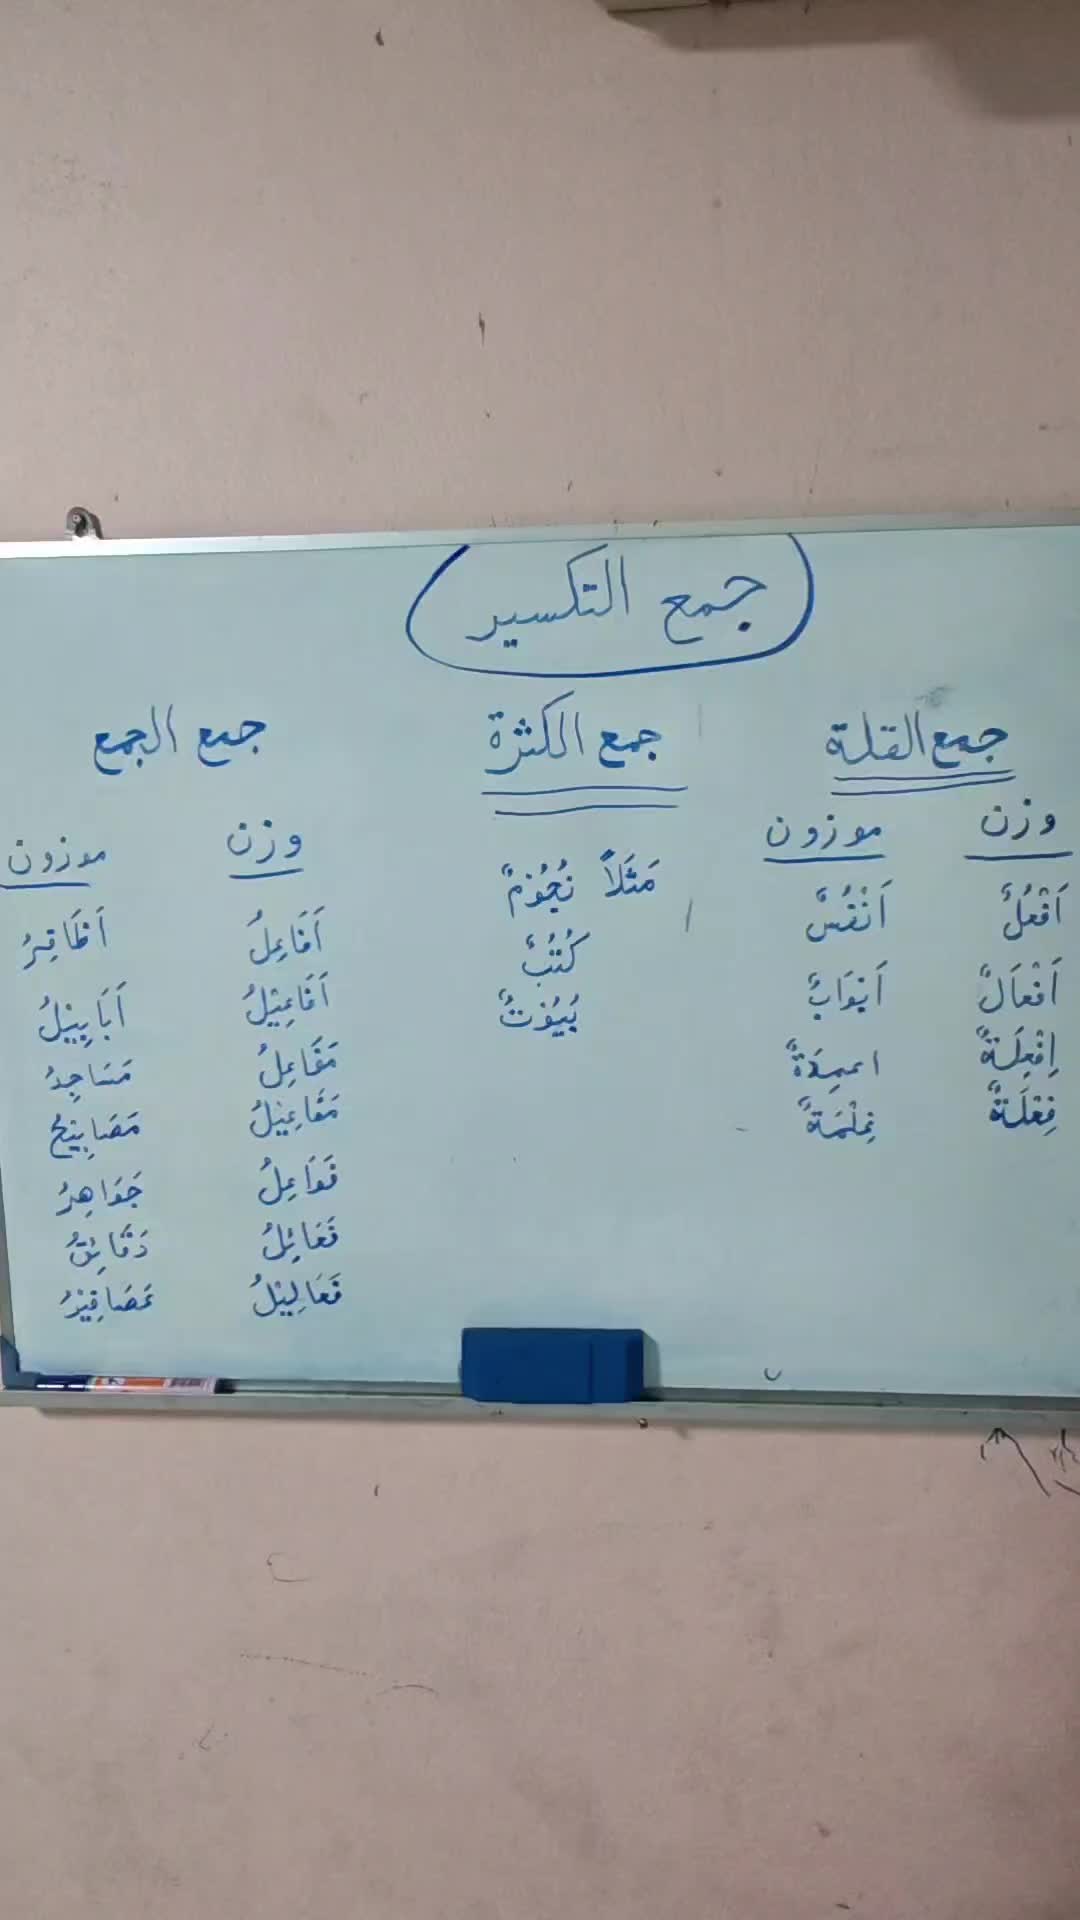 جمع التكسير
جمع القلة
وزن موزون
اَفْعُلٌ اَنْفُسٌ
اَفْعَالٌ اَبْوَابٌ
اِفْعِلَةٌ اعمِدَةٌ
فِعْلَةٌ غِلْمَةٌ
جمع الكثرة
مَثَلاً نُجُوْمٌ
كُتُبٌ
بُيُوْتٌ
جمع الجمع
وزن موزون
اَفَاعِلُ اَظَافِرُ
اَفَاعِيْلُ اَبَابِيْلُ
مَفَاعِلُ مَسَاجِدُ
مَفَاعِيْلُ مَصَابِيْحُ
فَوَاعِلُ جَوَاهِرُ
فَعَائِلُ دَقَائِقُ
فَعَالِيْلُ عَصَافِيْرُ